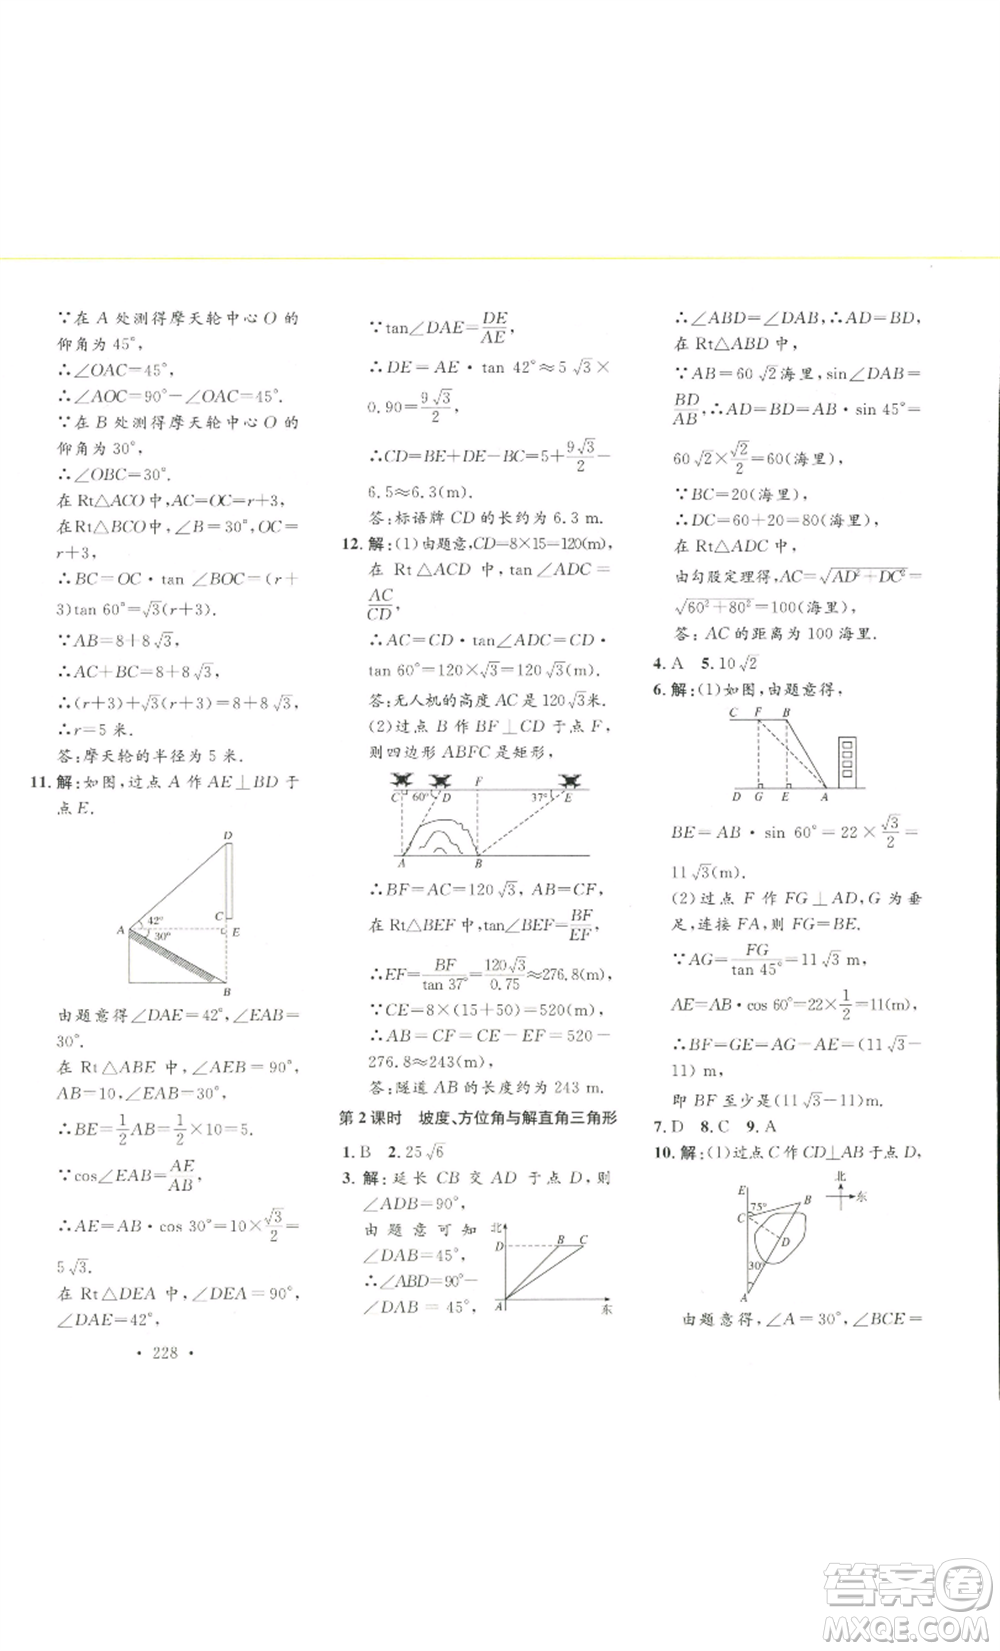 ∵在 A 处测得摩天轮中心 O 的
仰角为 45°,
∴∠OAC=45°.
∴∠AOC=90°-∠OAC=45°.
∵在 B 处测得摩天轮中心 O 的
仰角为 30°,
∴∠OBC=30°.
在 Rt△ACO 中, AC=OC=r+3,
在 Rt△BCO 中, ∠B=30°, OC=
r+3,
∴BC=OC·tan ∠BOC=(r+
3)tan 60°=√3(r+3).
∵AB=8+8√3,
∴AC+BC=8+8√3,
∴(r+3)+√3(r+3)=8+8√3,
∴r=5 米.
答:摩天轮的半径为 5 米.
11. 解:如图,过点 A 作 AE⊥BD 于
点 E.
D
A
42°
30°
C
E
B
由题意得∠DAE=42°,∠EAB=
30°.
在 Rt△ABE 中,∠AEB=90°,
AB=10,∠EAB=30°,
∴BE=1/2AB=1/2×10=5.
∵cos∠EAB=AE/AB,
∴AE=AB·cos 30°=10×√3/2=
5√3.
在 Rt△DEA 中,∠DEA=90°,
∠DAE=42°,
· 228 ·
∵tan∠DAE=DE/AE,
∴DE=AE·tan 42°≈5√3×
0.90=9√3/2,
∴CD=BE+DE-BC=5+9√3/2-
6.5≈6.3(m).
答:标语牌 CD 的长约为 6.3 m.
12. 解:(1)由题意,CD=8×15=120(m),
在 Rt△ACD 中,tan∠ADC=
AC/CD,
∴AC=CD·tan∠ADC=CD·
tan 60°=120×√3=120√3(米).
答:无人机的高度 AC 是 120√3米.
(2)过点 B 作 BF⊥CD 于点 F,
则四边形 ABFC 是矩形,
C
60°
D
F
37°
E
A
B
∴BF=AC=120√3,AB=CF.
在 Rt△BEF 中,tan∠BEF=BF/EF,
∴EF=BF/tan 37°≈120√3/0.75≈276.8(m).
∵CE=8×(15+50)=520(m),
∴AB=CF=CE-EF=520-
276.8≈243(m).
答:隧道 AB 的长度约为 243 m.
第 2 课时 坡度、方位角与解直角三角形
1. B 2. 25√6
3. 解:延长 CB 交 AD 于点 D,则
∠ADB=90°,
由题意可知
∠DAB=45°,
∴∠ABD=90°-
∠DAB=45°,
北
D
B
C
A
东
∴∠ABD=∠DAB,∴AD=BD,
在 Rt△ABD 中,
∵AB=60√2海里,sin∠DAB=
BD/AB,∴AD=BD=AB·sin 45°=
60√2×√2/2=60(海里),
∵BC=20(海里),
∴DC=60+20=80(海里),
由勾股定理得,AC=√(AD²+DC²)=
√(60²+80²)=100(海里),
答:AC 的距离为 100 海里.
4. A 5. 10√2
6. 解:(1)如图,由题意得,
C F B
D G E A
BE=AB·sin 60°=22×√3/2=
11√3(m).
(2)过点 F 作 FG⊥AD,G 为垂
足,连接 FA,则 FG=BE.
∵AG=FG/tan 45°=11√3 m,
AE=AB·cos 60°=22×1/2=11(m),
∴BF=GE=AG-AE=(11√3-
11)m.
即 BF 至少是(11√3-11)m.
7. D 8. C 9. A
10. 解:(1)过点 C 作 CD⊥AB 于点 D,
E
北
东
75°
B
C
D
30°
A
由题意得,∠A=30°,∠BCE=
答案圈
MXQE.COM